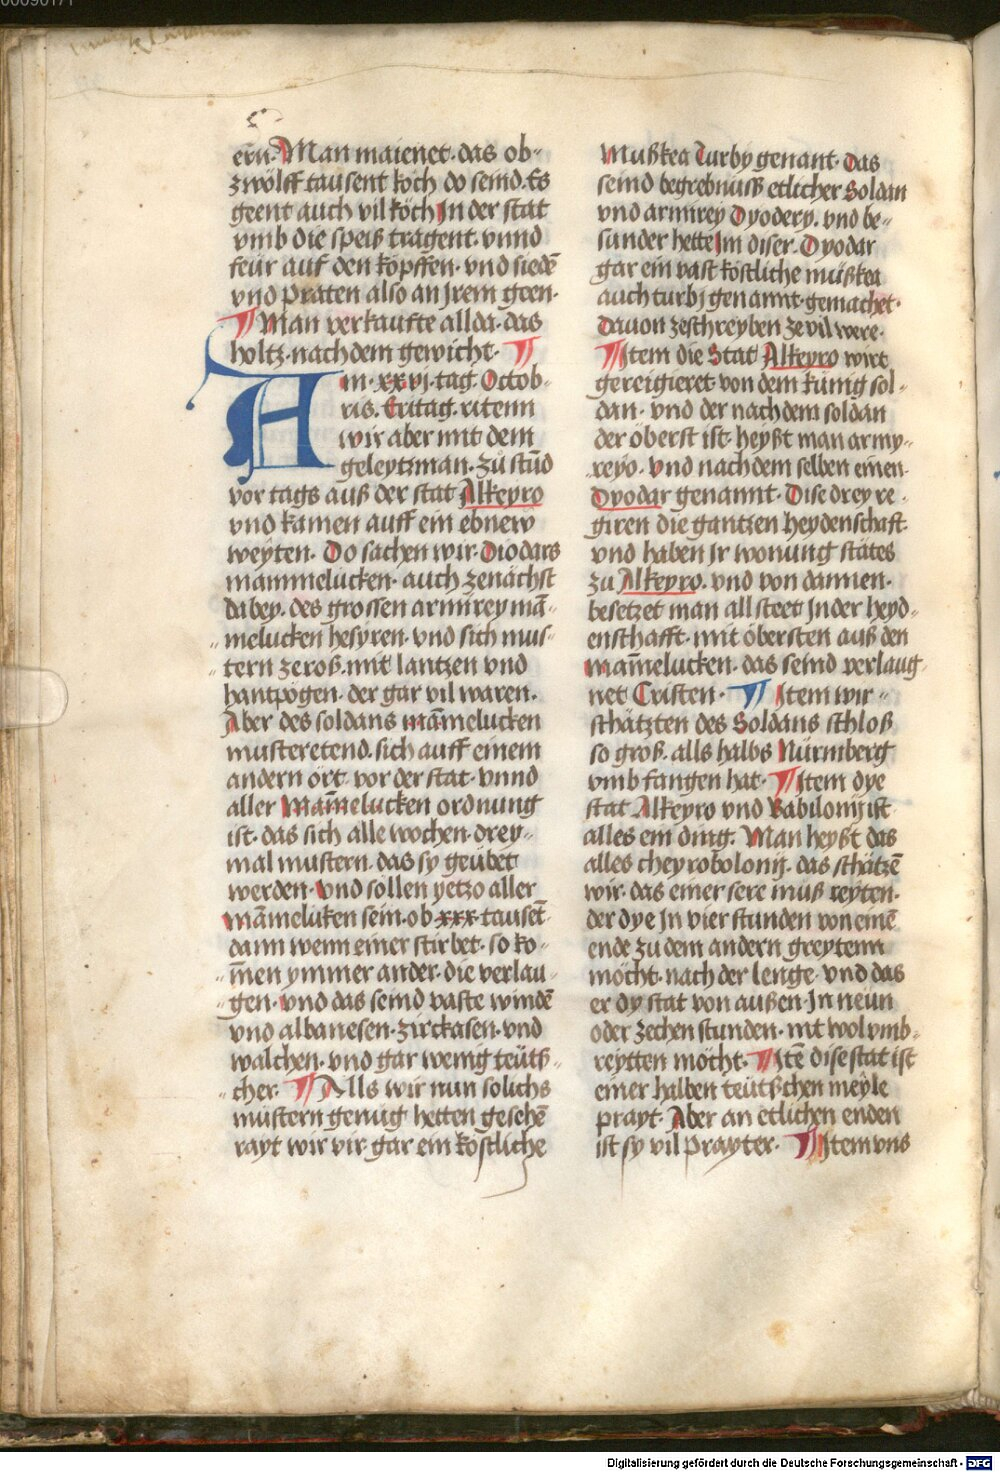 ern. Man maienet. das ob-
zwölff tausent köch do seind. Es
geent auch vil köch In der stat
vmb die speiß tragent. vnnd
feur auf den köpffen. vnd siedē
vnd praten also an Irem geen.
¶ Man verkaufte allda. das
holtz. nach dem gewicht. ¶
Am. xxvj. tag. Octob-
ris. Eritag. ritenn
wir aber mit dem
geleytzman. zů stūd
vor tags auß der stat Alkeyro
vnd kamen auff ein ebnew
weyten. Do sachen wir. Diodars
mammelucken. auch zenächst
dabey. des grossen armirey mā-
melucken hesyren. vnd sich mus-
tern zeroß. mit lantzen vnd
hantpögen. der gar vil waren.
Aber des soldans māmelucken
musteretend. sich auff einem
andern ört. vor der stat. vnnd
aller Mam̄elucken ordnung
ist. das sich alle wochen. drey-
mal mustern. das sy geübet
werden. vnd sollen yetzo aller
mām̄eluken sein. ob xxx. tauset̄
dann wenn einer stirbet. so ko-
m̄en ymmer ander. die verlau-
gen. vnd das seind vaste windē
vnd albanesen. zirckasen. vnd
walchen. vnd gar wenig teütß-
cher. ¶ Alls wir nun solichs
mustern genug hetten gesehē
rayt wir vir gar ein köstliche
Mußkea Turby genant. Das
seind begrebnüß etlicher Soldan
vnd armirey Dyodery. vnd be-
sunder hette Im diser. Dyodar
gar ein vast köstliche müßkea
auch turbj genannt. gemachet.
Dauon zeschreyben ze vil were.
¶ Item die Stat Alkeyro wirt
gereigieret von dem künig sol-
dan. vnd der nach dem soldan
der öberst ist. heyßt man army-
reyo. vnd nach dem selben einen
Dyodar genannt. Dise drey re-
giren die gantzen heydenschaft
vnd haben Ir wonung stätes
zu Alkeyro. vnd von dannen.
besetzet man all steet In der heyd-
enschafft. mit öbersten auß den
mam̄elucken. das seind verlaug-
net Cristen. ¶ Item wir
schätzten des Soldans schloß
so groß. alls halbs Nürmberg
vmbfangen hat. ¶ Item dye
stat Alkeyro vnd Babilonij ist
alles ein ding. Man heyßt das
alles cheyrobolonij. das schätzē
wir. das einer sere muß reyten.
der dye In vier stunden von einē
ende zu dem andern greytenn
möcht. nach der lenge. vnd das
er dy stat von außen. In neün
oder zechen stunden. nit wol vmb-
reytten möcht. ¶ Itē dise stat ist
einer halben teütßchen meyle
prayt. Aber an etlichen enden
ist sy vil prayter. ¶ Item vns
Digitalisierung gefördert durch die Deutsche Forschungsgemeinschaft - DFG